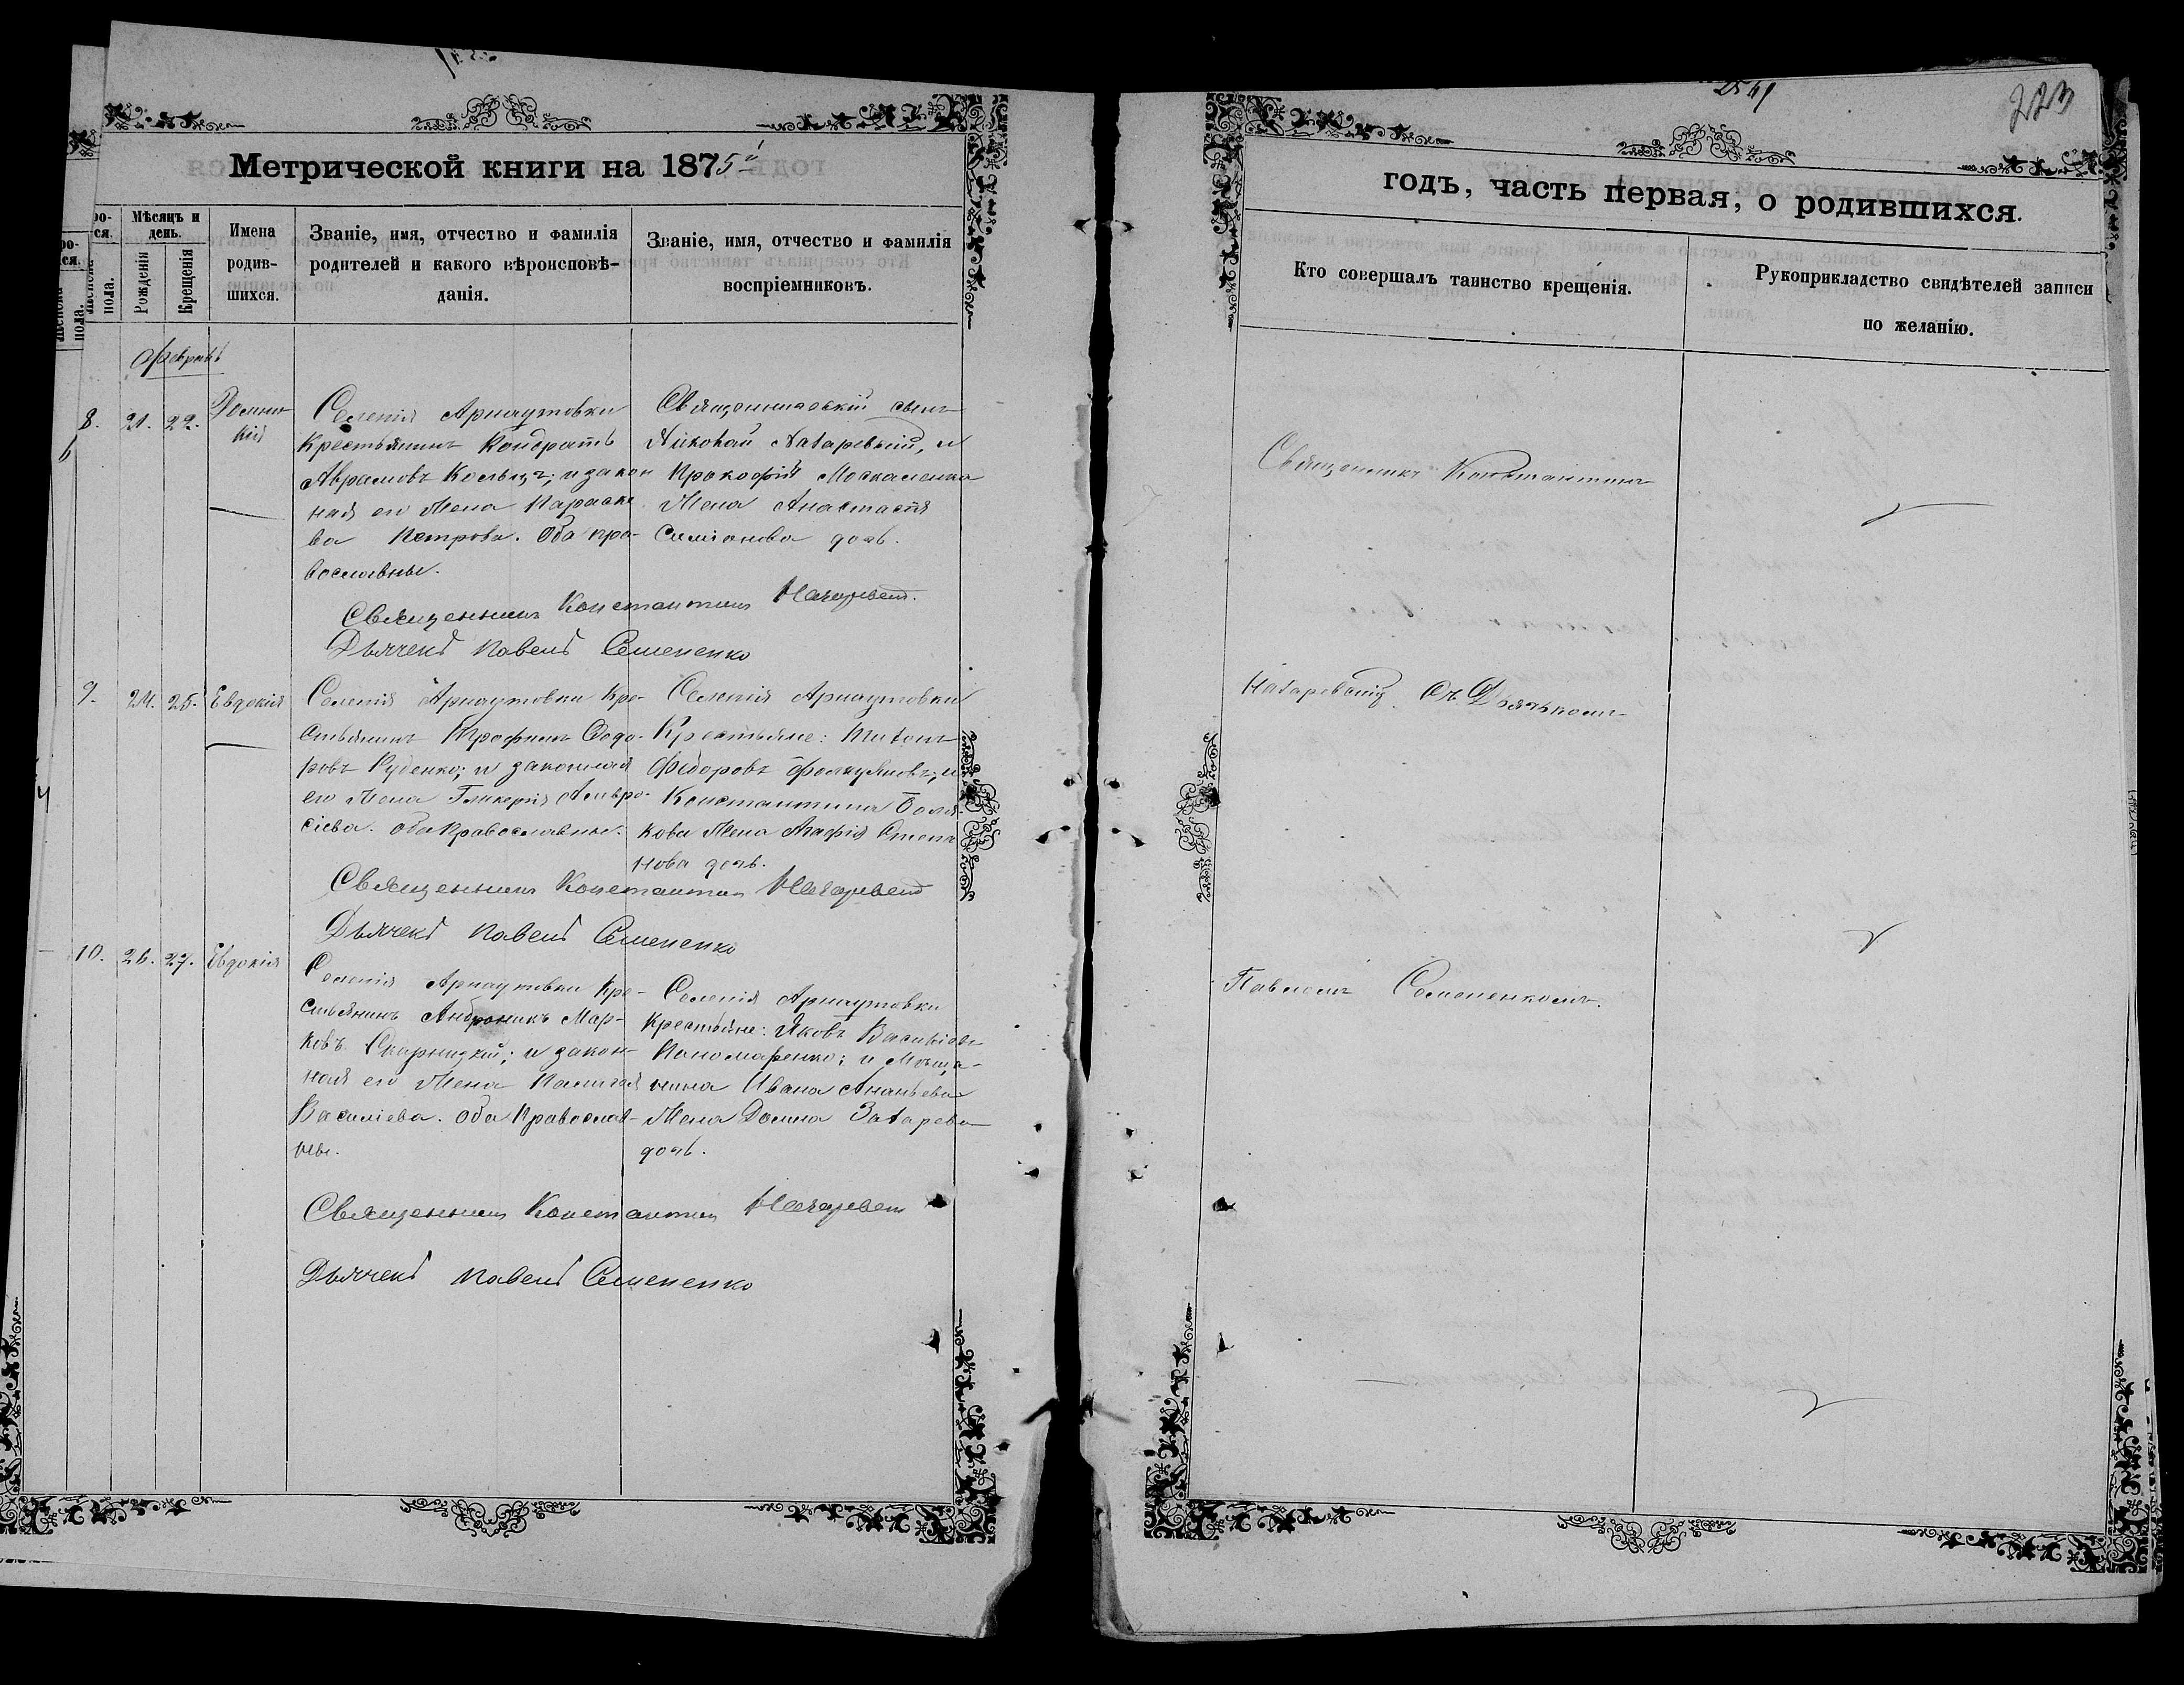 223
Метрической книги на 1875й
годъ, часть первая, о родившихся.
Мѣсяцъ и день.
Рожденія
Крещенія
Имена родив-
шихся.
Званіе, имя, отчество и фамилія
родителей и какого вѣроисповѣ-
данія.
Званіе, имя, отчество и фамилія
воспріемниковъ.
Кто совершалъ таинство крещенія.
Рукоприкладство свидѣтелей записи
по желанію.
Февраль
8. 21. 22.
Домни-
кія
Селенія Арнаутовки
крестьянинъ Кондратъ
Аврамовъ; и закон
ная его жена Параске
ва Петрова. Оба пра-
вославны.
Священническій сынъ
Николай Назаревскій, и
Прокофія Москаленка
жена Анастасія
Симіонова дочь.
Священникъ Константинъ Назаревскій.
Дьячекъ Павелъ Семененко
9. 24. 25. Евдокія
Селенія Арнаутовки кре-
стьянинъ Трофимъ Ѳедо-
ровъ Руденко; и законная
его жена Гликерія Амвро-
сіева. оба православные.
Селенія Арнаутовки
Крестьяне:
Федоровъ и
Константина
кова жена Агафія Степа
нова дочь.
Священникъ Константинъ Назаревскій
Дьячекъ Павелъ Семененко
10. 26. 27. Евдокія
Селенія Арнаутовки кре-
стьянинъ Андроникъ Мар-
ковъ Скарницкій; и закон-
ная его жена Палагея
Василіева. Оба Православ-
ны.
Селенія Арнаутовки
крестьяне: Яковъ Васильевъ
Пономаренко; и Мѣща-
нина Ивана Ананьева
жена Домна Захарева
дочь.
Священникъ Константинъ Назаревскій
Дьячекъ Павелъ Семененко
Священникъ Константинъ
Назаревскій Съ Дьячкомъ
Павломъ Семененкомъ.